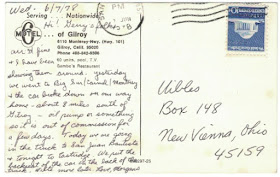 Wed. 6/7/78
Serving Nationwide
Hi Gerry & Arthur
MOTEL 6 of Gilroy
6110 Monterey Hwy. (Hwy. 101)
Gilroy, Calif. 95020
Phone 408-842-9306
60 units, pool, T.V.
Sambo's Restaurant
& I have been
showing them around. Yesterday
we went to Big Sur (Carmel) Monterey
and the car broke down on our way
home - about 8 miles south of
Gilroy - oil pump or something
so it is out of commission for
a few days. Today we are going
in the truck to San Juan Bautista
& tonight to Eastridge. We put the
backseat of the car in the back of the
truck. Write more later. Love,
Uibles
Box 148
New Vienna, Ohio
45159